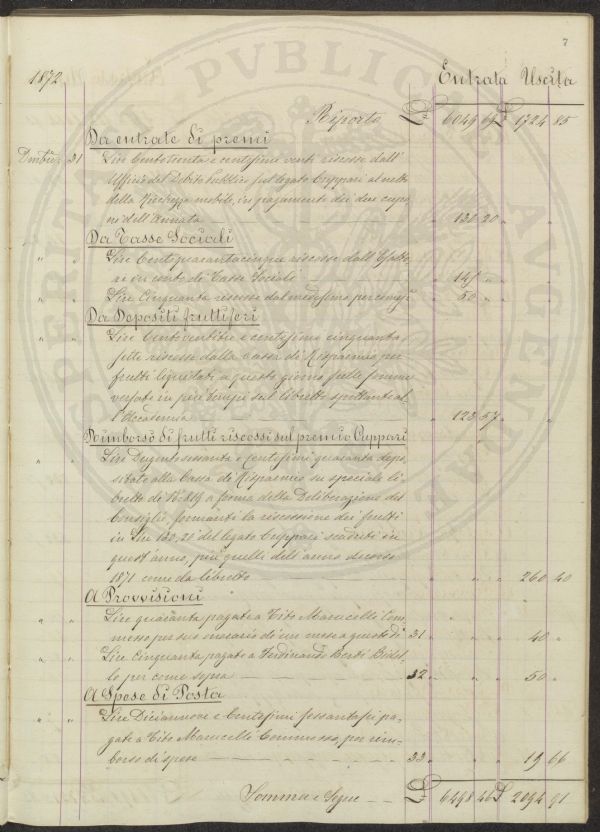 7
1872 Entrata Uscita
Riporto L 6049 69 L 1724 85
Da entrate di premi
Dmbre 31 Lire Centotrenta e centesimi venti riscosse dall'
Uffizio del Debito Pubblico sul legato Cuppari al netto
della Ricchezza mobile, in pagamento dei due cupo
ni dell'Annata 130 20 " "
Da Tasse Sociali
" " Lire Centoquarantacinque riscosse dall'Esatto
re in conto di Tasse Sociali 145 " " "
" " Lire Cinquanta riscosse dal medesimo per 50 " " "
Da Depositi fruttiferi
" " Lire Centoventitre e centesimi cinquanta
sette riscosse dalla Cassa di Risparmio per
frutti liquidati a questo giorno sulle somme
versate in più tempi sul libretto spettante al
l'Accademia 123 57 " "
Rimborso di frutti riscossi sul premio Cuppari
" " Lire Dugentosessanta e Centesimi quaranta depo
sitate alla Cassa di Risparmio su speciale li
bretto di a forma della Deliberazione del
Consiglio, formanti la riscossione dei frutti
in Lire 130,20 del legato Cuppari scaduti in
quest'anno, più quelli dell'anno decorso
1871 come da libretto " " " 260 40
A Provvisioni
" " Lire quaranta pagate a Tito Marucelli Com
messo per suo onorario di un mese a questo dì 31 " " " 40 "
" " Lire Cinquanta pagate a Ferdinando Berti Bidel
lo per come sopra 32 " " " 50 "
A Spese di Posta
" " Lire Diciannove e Centesimi sessantasei pa
gate a Tito Marucelli Commesso, per rim
borso di spese 33 " " " 19 66
Somma e Segue L 6498 46 L 2094 91
SPERITAE PVBLICAE AVGENDAE